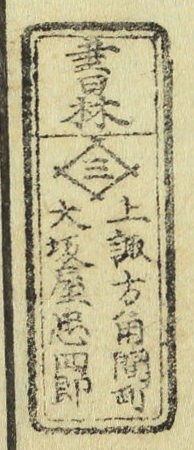 書林
三
上諏方角間町
大坂屋忠四郎